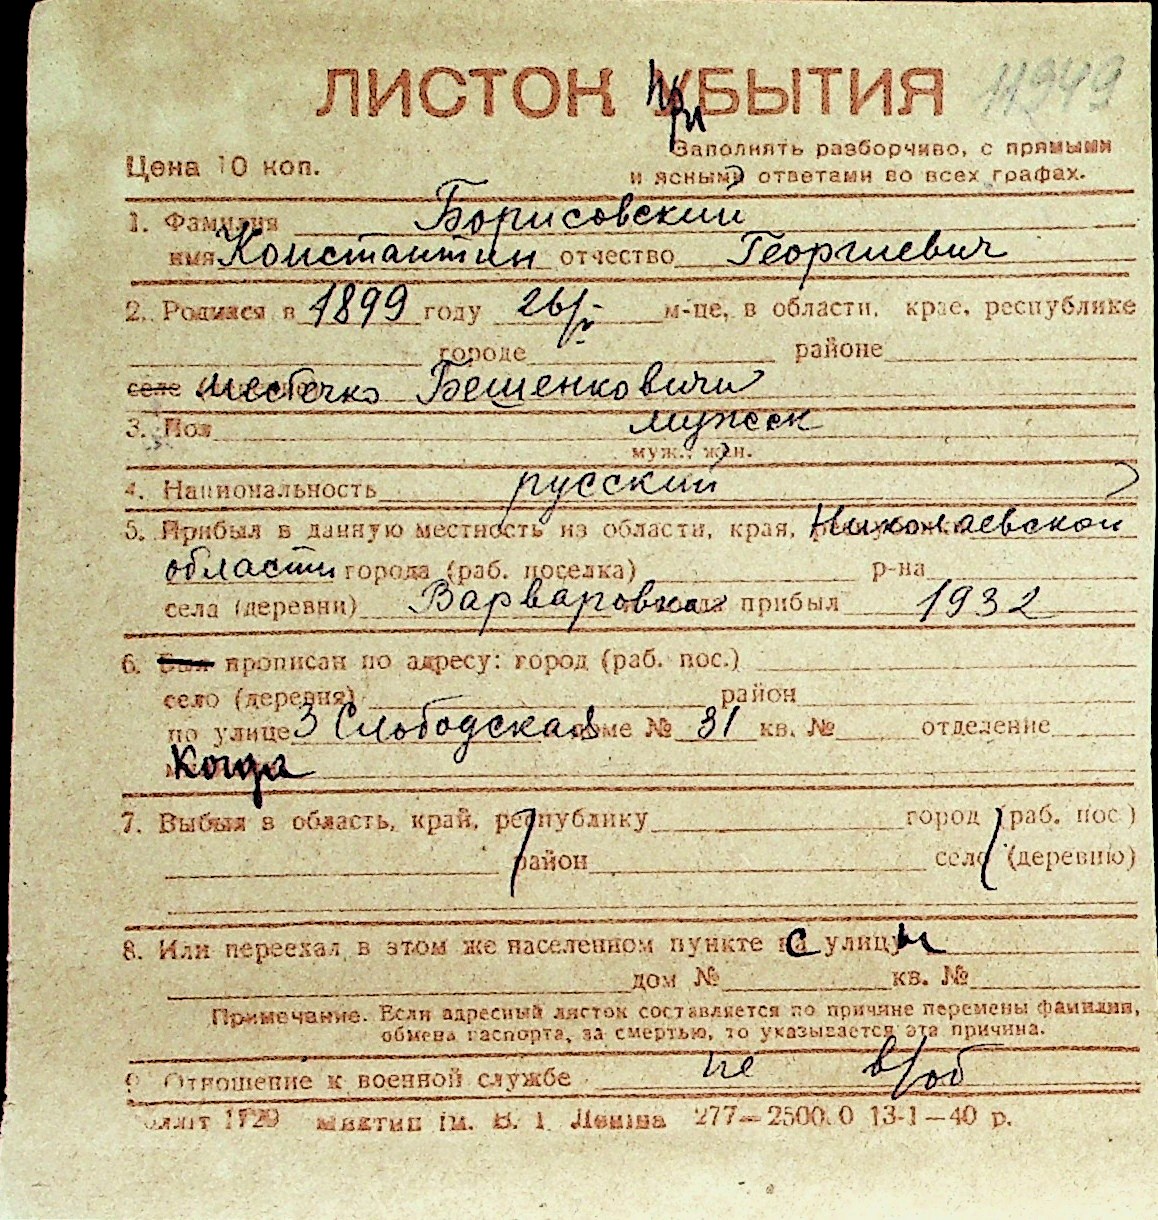 11949
ЛИСТОК при БЫТИЯ
Цена 10 коп.
Заполнять разборчиво, с прямыми
и ясными ответами во всех графах.
1. Фамилия Борисовский
имя Константин отчество Георгиевич
2. Родился в 1899 году 26/V м-це, в области, крае, республике
городе районе
селе местечко Бешенковичи
3. Пол мужск
муж., жен.
4. Национальность русский
5. Прибыл в данную местность из области, края, Николаевской
области города (раб. поселка) р-на
села (деревни) Варваровка прибыл 1932
6. Был прописан по адресу: город (раб. пос.)
село (деревня) район
по улице 3 Слободская доме № 31 кв. № отделение
Когда
7. Выбыл в область, край, республику город (раб. пос.)
район село (деревню)
8. Или переехал в этом же населенном пункте с улицы
дом № кв. №
Примечание. Если адресный листок составляется по причине перемены фамилии,
обмена паспорта, за смертью, то указывается эта причина.
9. Отношение к военной службе не в/об
1729 ім. В. І. Леніна 277—25000 13-1—40 р.